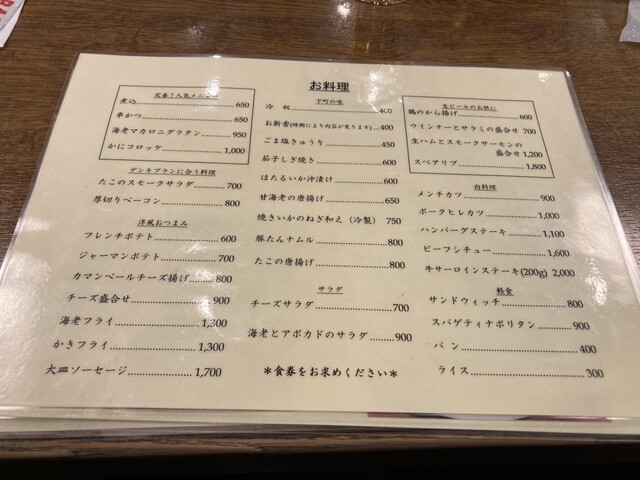 お料理
定番!人気メニュー
煮込 650
串かつ 650
海老マカロニグラタン 950
かにコロッケ 1,000
デンキブランに合う料理
たこのスモークサラダ 700
厚切りベーコン 800
洋風おつまみ
フレンチポテト 600
ジャーマンポテト 700
カマンベールチーズ揚げ 800
チーズ盛合せ 900
海老フライ 1,300
かきフライ 1,300
大皿ソーセージ 1,700
下町の味
冷奴 400
お新香(時期により内容が変ります) 400
ごま塩きゅうり 450
茄子しぎ焼き 600
ほたるいか沖漬け 600
甘海老の唐揚げ 650
焼きいかのねぎ和え(冷製) 750
豚たんナムル 800
たこの唐揚げ 800
サラダ
チーズサラダ 700
海老とアボカドのサラダ 900
*食券をお求めください*
生ビールのお供に
鶏のから揚げ 600
ウインナーとサラミの盛合せ 700
生ハムとスモークサーモンの
盛合せ 1,200
スペアリブ 1,800
肉料理
メンチカツ 900
ポークヒレカツ 1,000
ハンバーグステーキ 1,100
ビーフシチュー 1,600
牛サーロインステーキ(200g) 2,000
軽食
サンドウィッチ 800
スパゲティナポリタン 900
パン 400
ライス 300